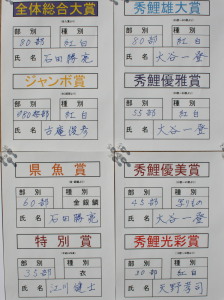 全体総合大賞
部 別 種 別
80部 紅白
氏 名 石田勝亮
ジャンボ賞
部 別 種 別
紅白
氏 名
県魚賞
部 別 種 別
60部 金銀鱗
氏 名 石田勝亮
特別賞
部 別 種 別
35部 衣
氏 名 江川健士
秀鯉雄大賞
部 別 種 別
80部 紅白
氏 名 大谷一登
秀鯉優雅賞
部 別 種 別
55部 紅白
氏 名 大谷一登
秀鯉優美賞
部 別 種 別
45部
氏 名 大谷一登
秀鯉光彩賞
部 別 種 別
30部 紅白
氏 名 天野